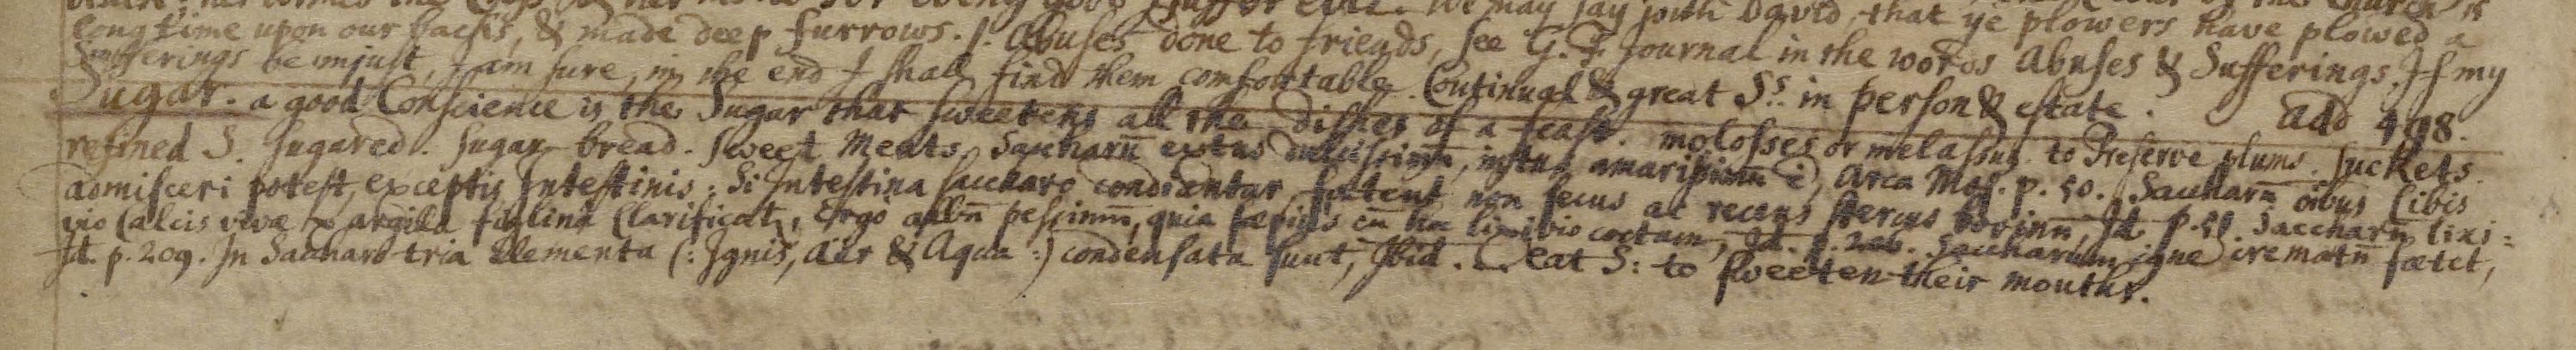 We may say with David, that ye plowers have plowed a
long time upon our backs, & made deep furrows. S. Abuses done to friends, see G. F. Journal in the words Abuses & Sufferings. If my
Sufferings be unjust, I am sure, in the end I shall find them comfortable. Continual & great Ss. in person & estate.
Sugar. a good Conscience is the Sugar that sweetens all the dishes of a feast. molosses or melassus. to Preserve plums. Suckets. add 498.
refined S. Sugared. Sugar-bread. Sweet Meats. Saccharũ extus dulcissimũ, intus amarissimũ ē, Arca Mos. p. 50. Saccharũ oibus Cibis
admisceri potest, exceptis Intestinis: Si Intestina saccharo condiantur foetent non secus ac recens stercus bovinũ, Id. p. 51. Saccharũ lixi=
vio Calcis vivæ ex argilla figlina Clarificat, Ergo albũ pessimũ, quia sæpius cũ hoc lixivio coctum, Id. p. Saccharum igne crematũ fœtet,
Id. p. 209. In Saccharo tria Elementa (: Ignis, Aër & Aqua :) condensata sunt, Ibid. eat S: to sweeten their mouths.